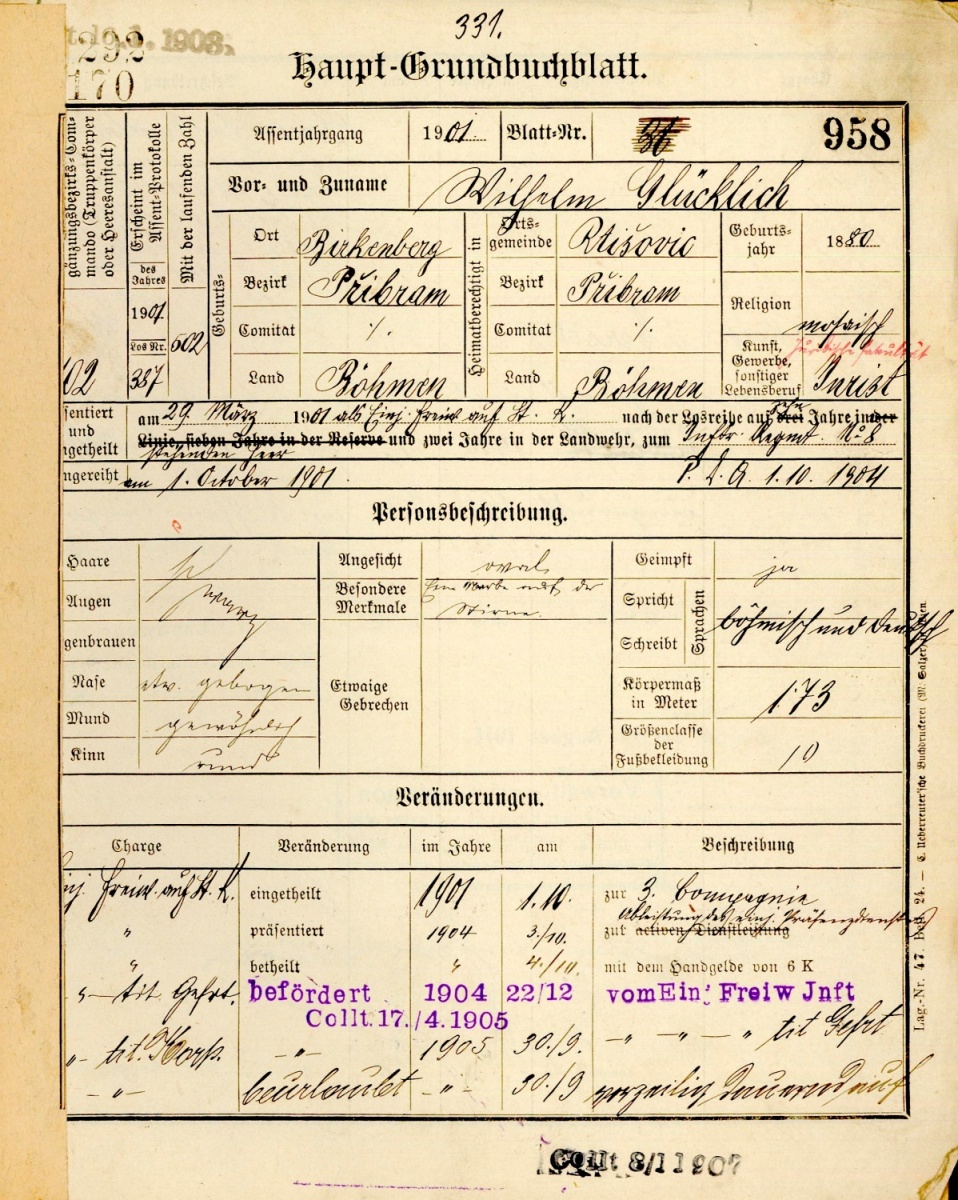 331.
1903.
292
170
Haupt-Grundbuchblatt.
gänzungsbezirks-Com-
mando (Truppenkörper
oder Heeresanstalt)
02
Erscheint im
Assent-Protokolle
des
Jahres
1901
Los Nr.
387
Mit der laufenden Zahl
602
Assentjahrgang 1901 Blatt-Nr. 31 958
Vor- und Zuname Wilhelm Glücklich
Geburts-
Ort Birkenberg
Bezirk Přibram
Comitat ·/.
Land Böhmen
Heimatberechtigt in
Orts-
gemeinde Rtišovic
Bezirk Přibram
Comitat ·/.
Land Böhmen
Geburts-
jahr 1880
Religion mosaisch
Kunst,
Gewerbe,
sonstiger
Lebensberuf Jurist
sentiert
und
getheilt
am 29. März 1901 als Einj. Freiw auf St. K. nach der Losreihe auf zehn drei Jahre in der
Linie, sieben Jahre in der Reserve und zwei Jahre in der Landwehr, zum Inftr. Regmt. No 8
stehenden Heer
ngereiht am 1. October 1901. P. D. A. 1.10. 1904
Personsbeschreibung.
Haare
Augen
genbrauen
schwarz
Nase etw. gebogen
Mund gewöhnlich
Kinn rund
Angesicht oval
Besondere
Merkmale
Eine Narbe auf der
Stirne.
Etwaige
Gebrechen
Geimpft ja
Spricht
Schreibt
Sprachen
böhmisch und deutsch
Körpermaß
in Meter 1·73
Größenclasse
der
Fußbekleidung 10
Veränderungen.
Charge Veränderung im Jahre am Beschreibung
inj. Freiw. auf St. K. eingetheilt 1901 1.10. zur 3. Compagnie
Ableistung des einj. Präsenzdienstes
" präsentiert 1904 3./10. zur activen Dienstleistung
" betheilt " 4./10. mit dem Handgelde von 6 K
"— tit. Gefrt. befördert 1904 22/12 vom Ein. Freiw Jnft
Collt. 17./4.1905
"- tit. Korp. -"- 1905 30./9. -"- -"- -" tit Gefrt
-"- beurlaubt -"- 30./9 vorzeitig dauernd auf
Collt 8/1 1907
Lag.-Nr. 47. Heft 24. — C. Ueberreuter'sche Buchdruckerei (M. Salzer)